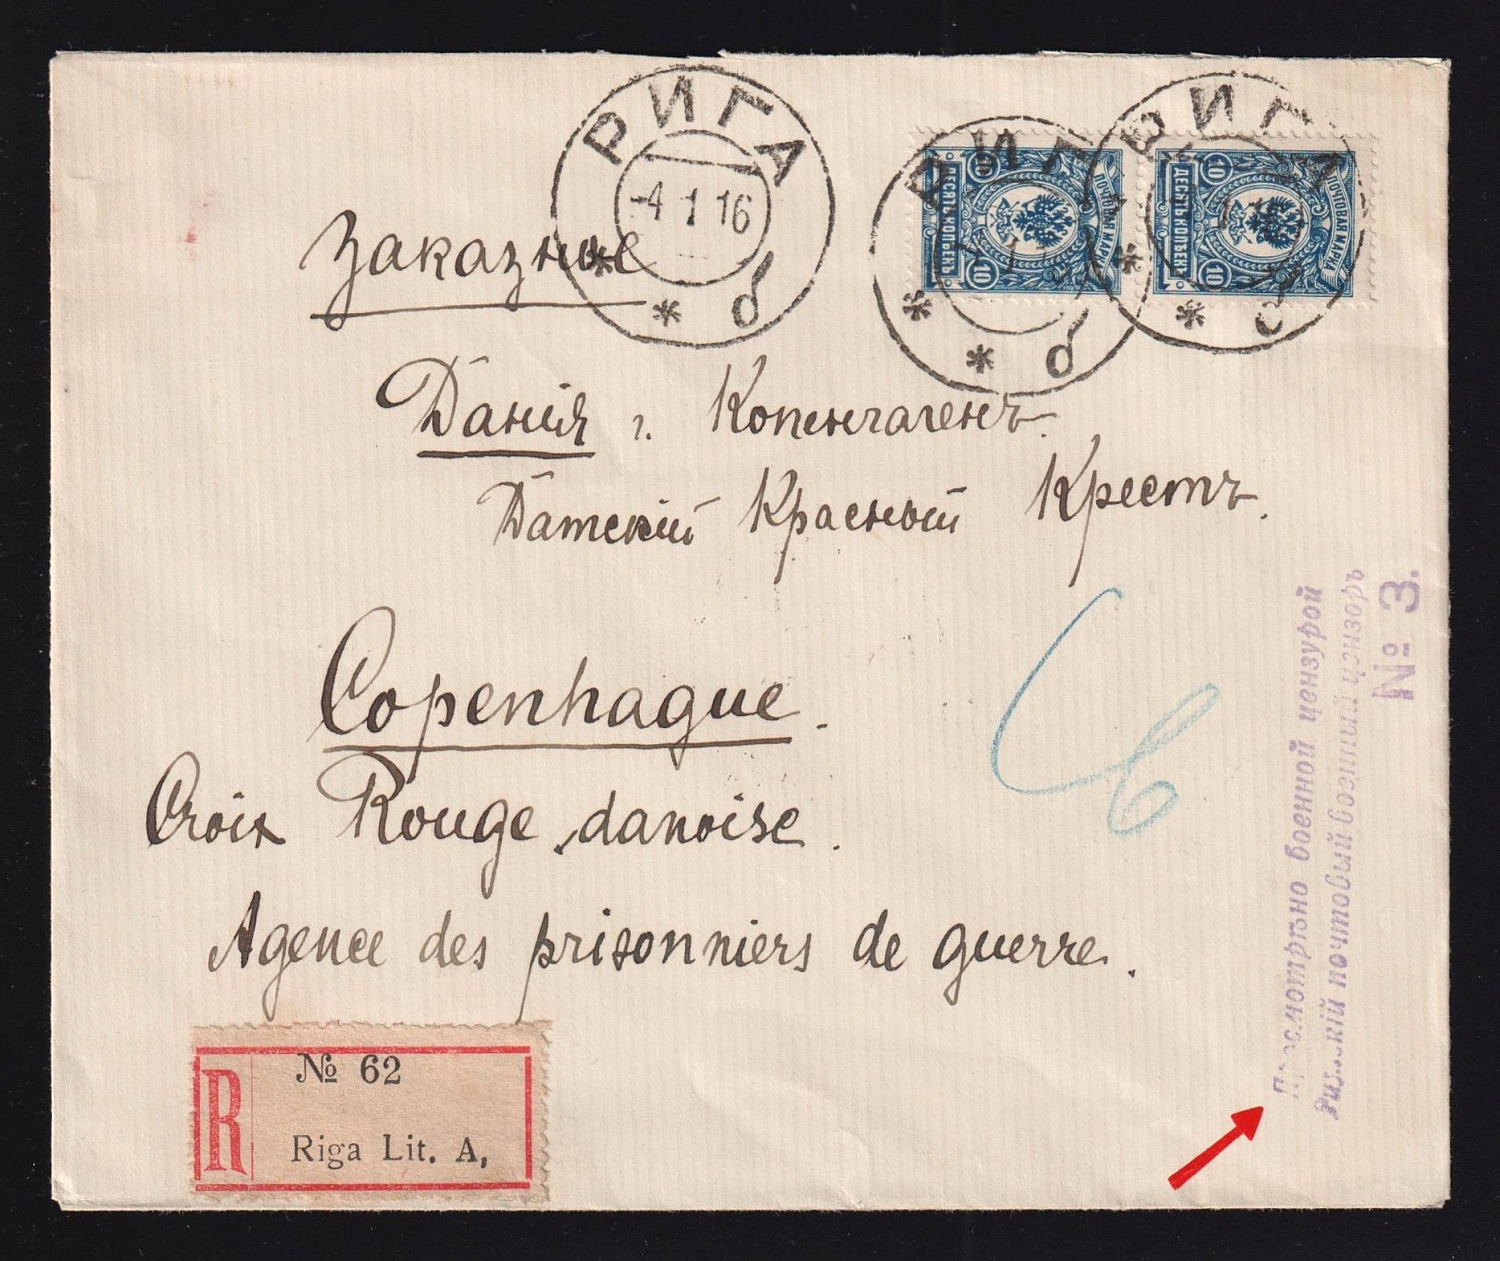 РИГА
-4 1 16
б
РИГ
б
РИГА
б
10
ДЕСЯТЬ КОПѢЕКЪ
ПОЧТОВАЯ МАРКА
10
10
ДЕСЯТЬ КОПѢЕКЪ
ПОЧТОВАЯ МАРКА
10
Заказное
Данія г. Копенгагенъ.
Датскій Красный Крестъ.
Copenhague.
Croix Rouge danoise.
Agence des prisonniers de guerre.
Просмотрѣно военной цензурой
Рижскій почтовый военный цензоръ
№ 3.
R
№ 62
Riga Lit. A,